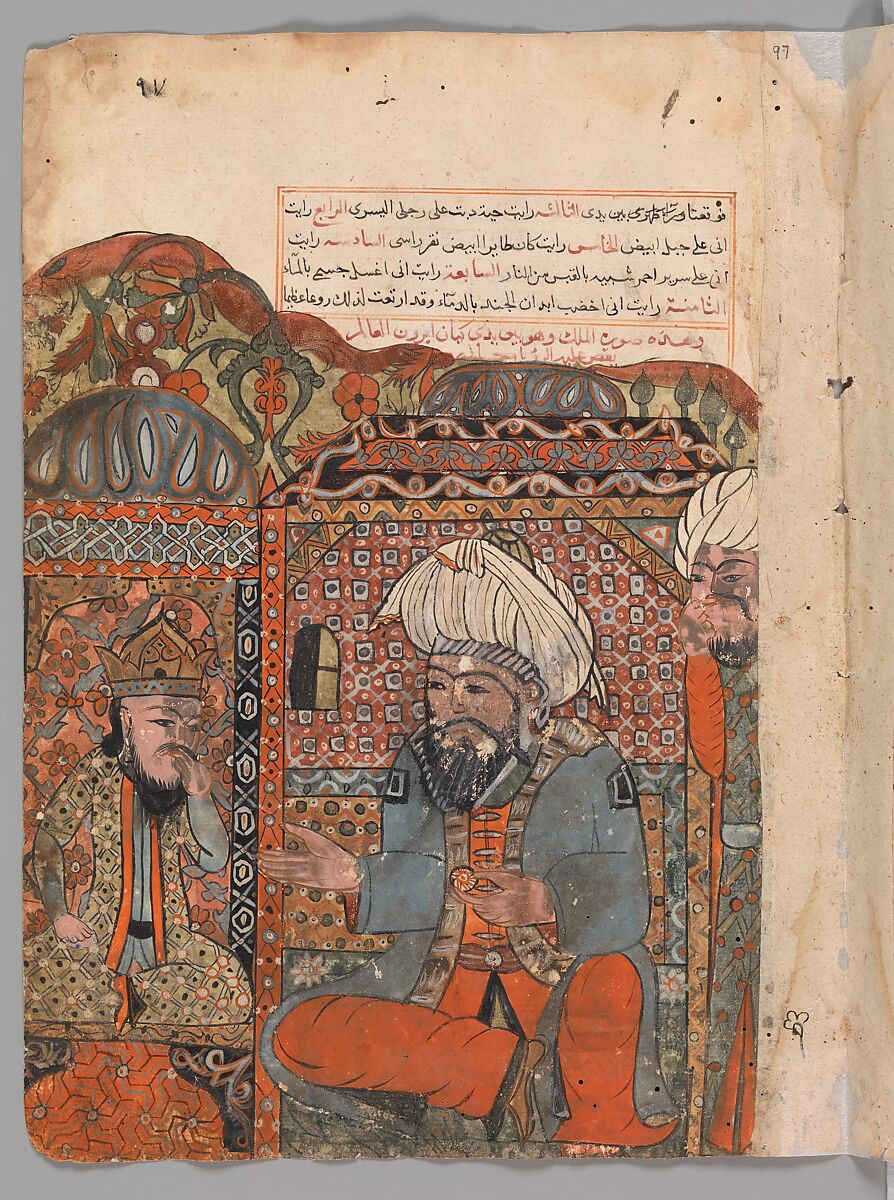 ٩٧
97
بين يدى الثالثة رايت حية دبت على رجلى اليسرى الرابع رايت
انى على جبل ابيض الخامس رايت كان طايرا ابيض نقر راسى السادسه رايت
انى على سرير احمر شبيه بالقبس من النار السابعة رايت انى اغسل جسمى بالماء
الثامنة رايت انى اخضب ابدان الجند بالدماء وقد ارتعت لذلك روعا عظيما
وهذه صورة الملك وهو بين يدى كبان ايرون العالم
يقص عليه الرؤيا